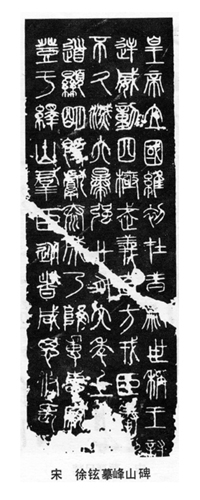 皇帝立國維初在昔嗣世稱王討
逆威動四極武義直方戎臣奉
不久滅六暴強廿有六年上
道顯明既獻泰成乃降専惠
登于繹山群臣從者咸思攸長
宋 徐铉摹峰山碑